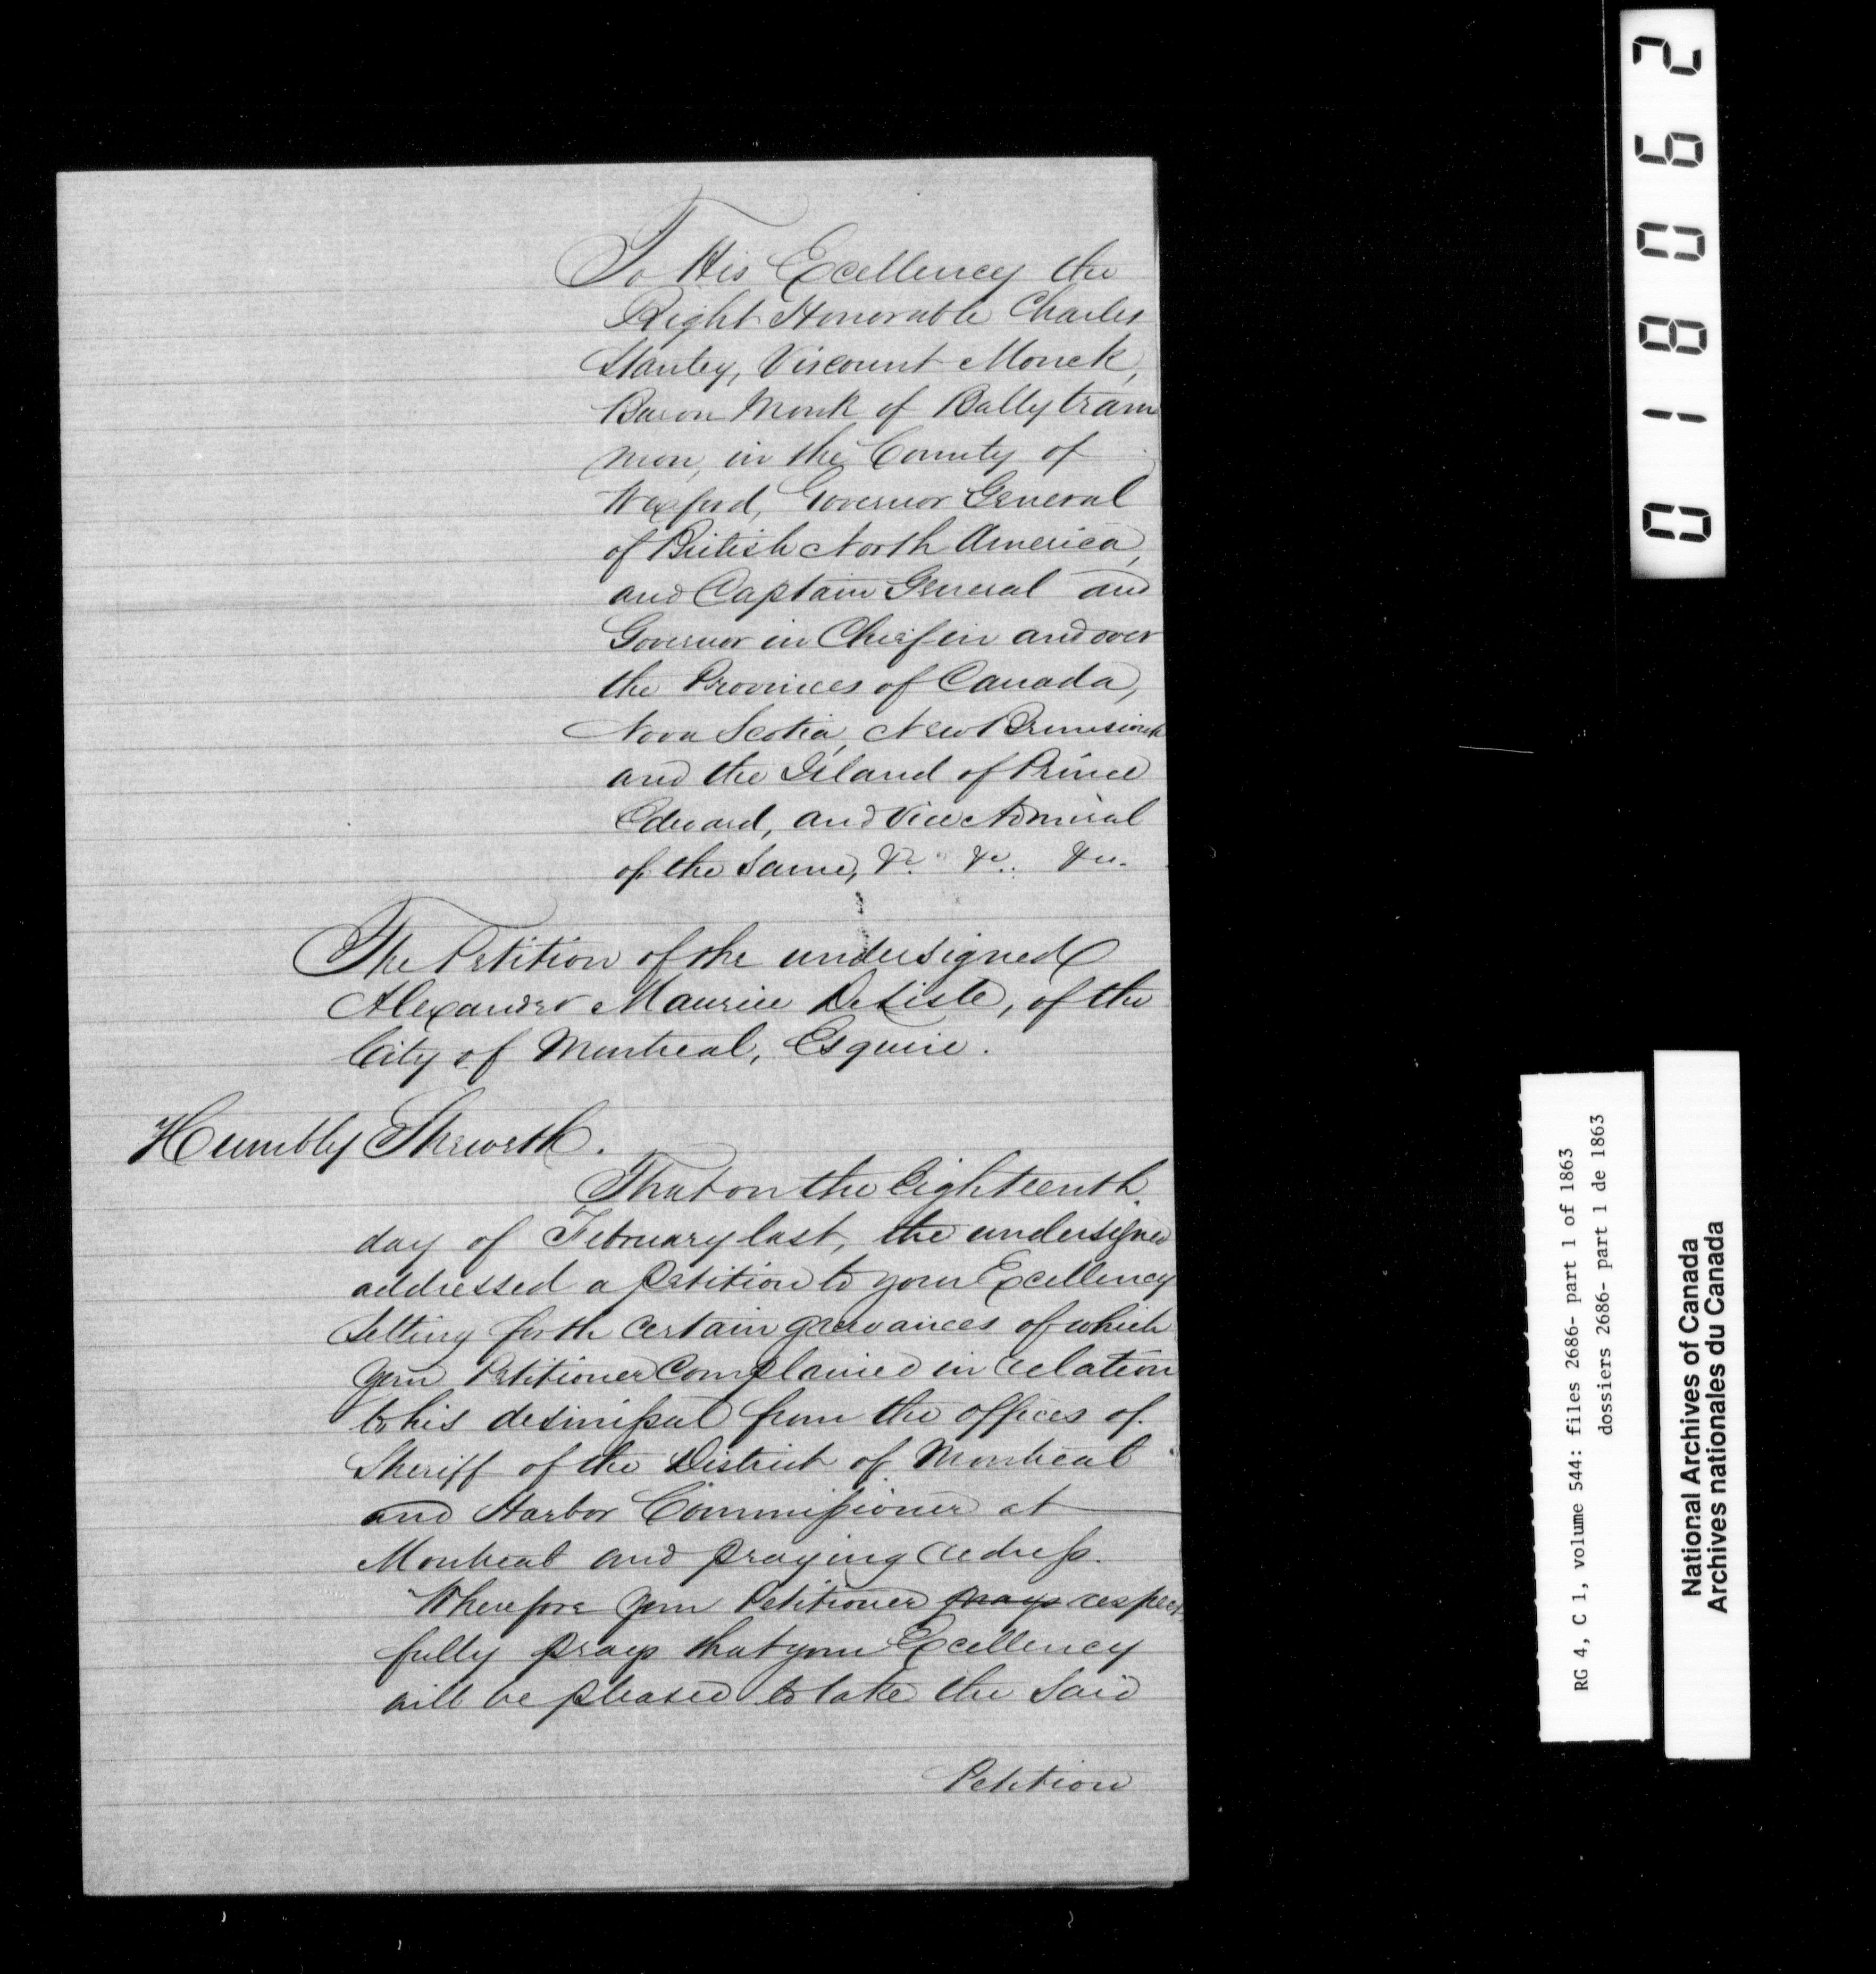 To His Excellency the
Right Honorable Charles
Stanley, Viscount Monck,
Baron Monk of Ballytram
mon, in the County of
Wexford, Governor General
of British North America,
and Captain General and
Governor in Chief in and over
the Provinces of Canada,
Nova Scotia, New Brunswick
and the Island of Prince
Edward, and Vice Admiral
of the Same, &c. &c. &c.
The Petition of the undersigned
Alexander Maurice Delisle, of the
City of Montreal, Esquire.
Humbly Sheweth.
That on the Eighteenth
day of February last, the undersigned
addressed a Petition to your Excellency
Setting forth certain grievances of which
your Petitioner Complained in relation
to his dismissal from the offices of
Sheriff of the District of Montreal
and Harbor Commissioner at
Montreal and praying redress.
Wherefore your Petitioner prays respect
fully prays that your Excellency
will be pleased to take the Said
Petition
018062
RG 4, C 1, volume 544: files 2686- part 1 of 1863
dossiers 2686- part 1 de 1863
National Archives of Canada
Archives nationales du Canada